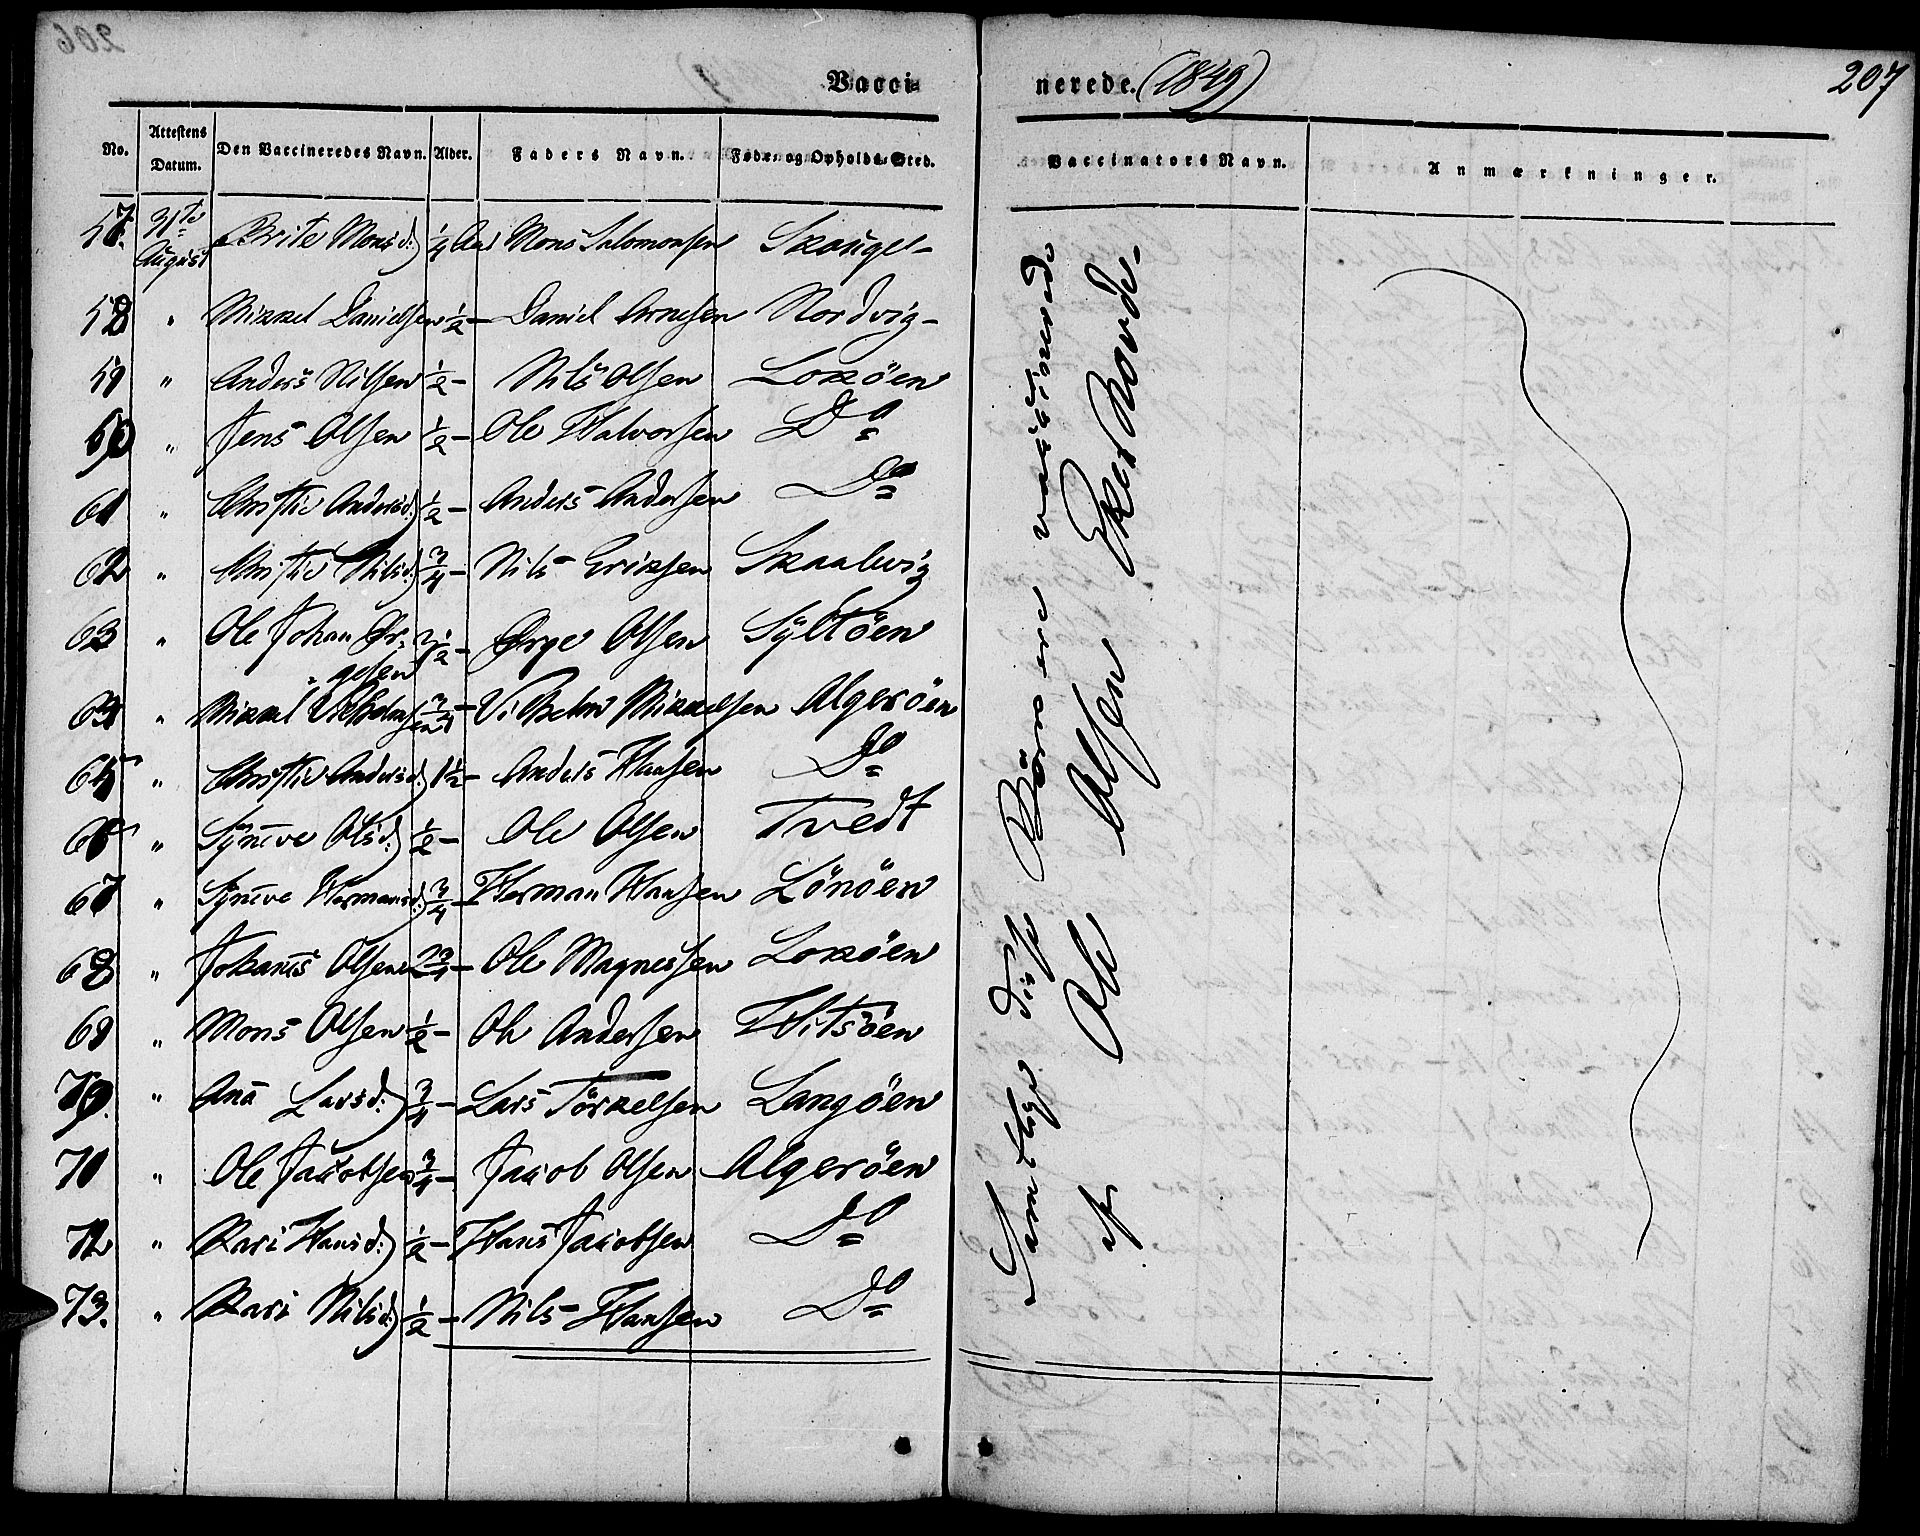 207
Vaccinerede. (1849)
No. Attestens Datum. Den Vaccineredes Navn. Alder. Faders Navn. Føde- og Opholds-Sted. Vaccinators Navn. Anmærkninger.
57. 31te August Brite Monsd:) 1/4 Aar Mons Salomonsen Skougel-
58 " Mikkel Danielsen 1/2 - Daniel Arnesen Nordvig-
59 " Anders Nilsen 1/2 - Nils Olsen Lokøen
60 " Jens Olsen 1/2 - Ole Halvorsen Do
61 " Christie Andersd:) 1/2 - Anders Andersen Do
62 " Christie Nilsd:) 3/4 - Nils Eriksen Skaalvig
63 " Ole Johan Ør-
gesen 2 1/2 - Ørge Olsen Syltøen
64 " Mikkel Vilhelmsen 3/4 - Vilhelm Mikkelsen Algerøen
65 " Christie Andersd:) 1 1/2 - Anders Hansen Do
66 " Synneve Olsd:) 1/2 - Ole Olsen Tvedt
67 " Synneve Hermansd:) 3/4 - Herman Hansen Lønøen
68 " Johannes Olsen 2 3/4 - Ole Magnessen Lokøen
69 " Mons Olsen 1/2 - Ole Andersen Hitsøen
70. " Anna Larsd:) 3/4 - Lars Tørkelsen Langøen
71 " Ole Jacobsen 3/4 - Jacob Olsen Algerøen
72 " Kari Hansd:) 1/2 - Hans Jacobsen Do
73. " Kari Nilsd:) 1/2 - Nils Hansen Do
Samtlige disse Børn ere vaccinerede
af Ole Olsen Ekerhovde-